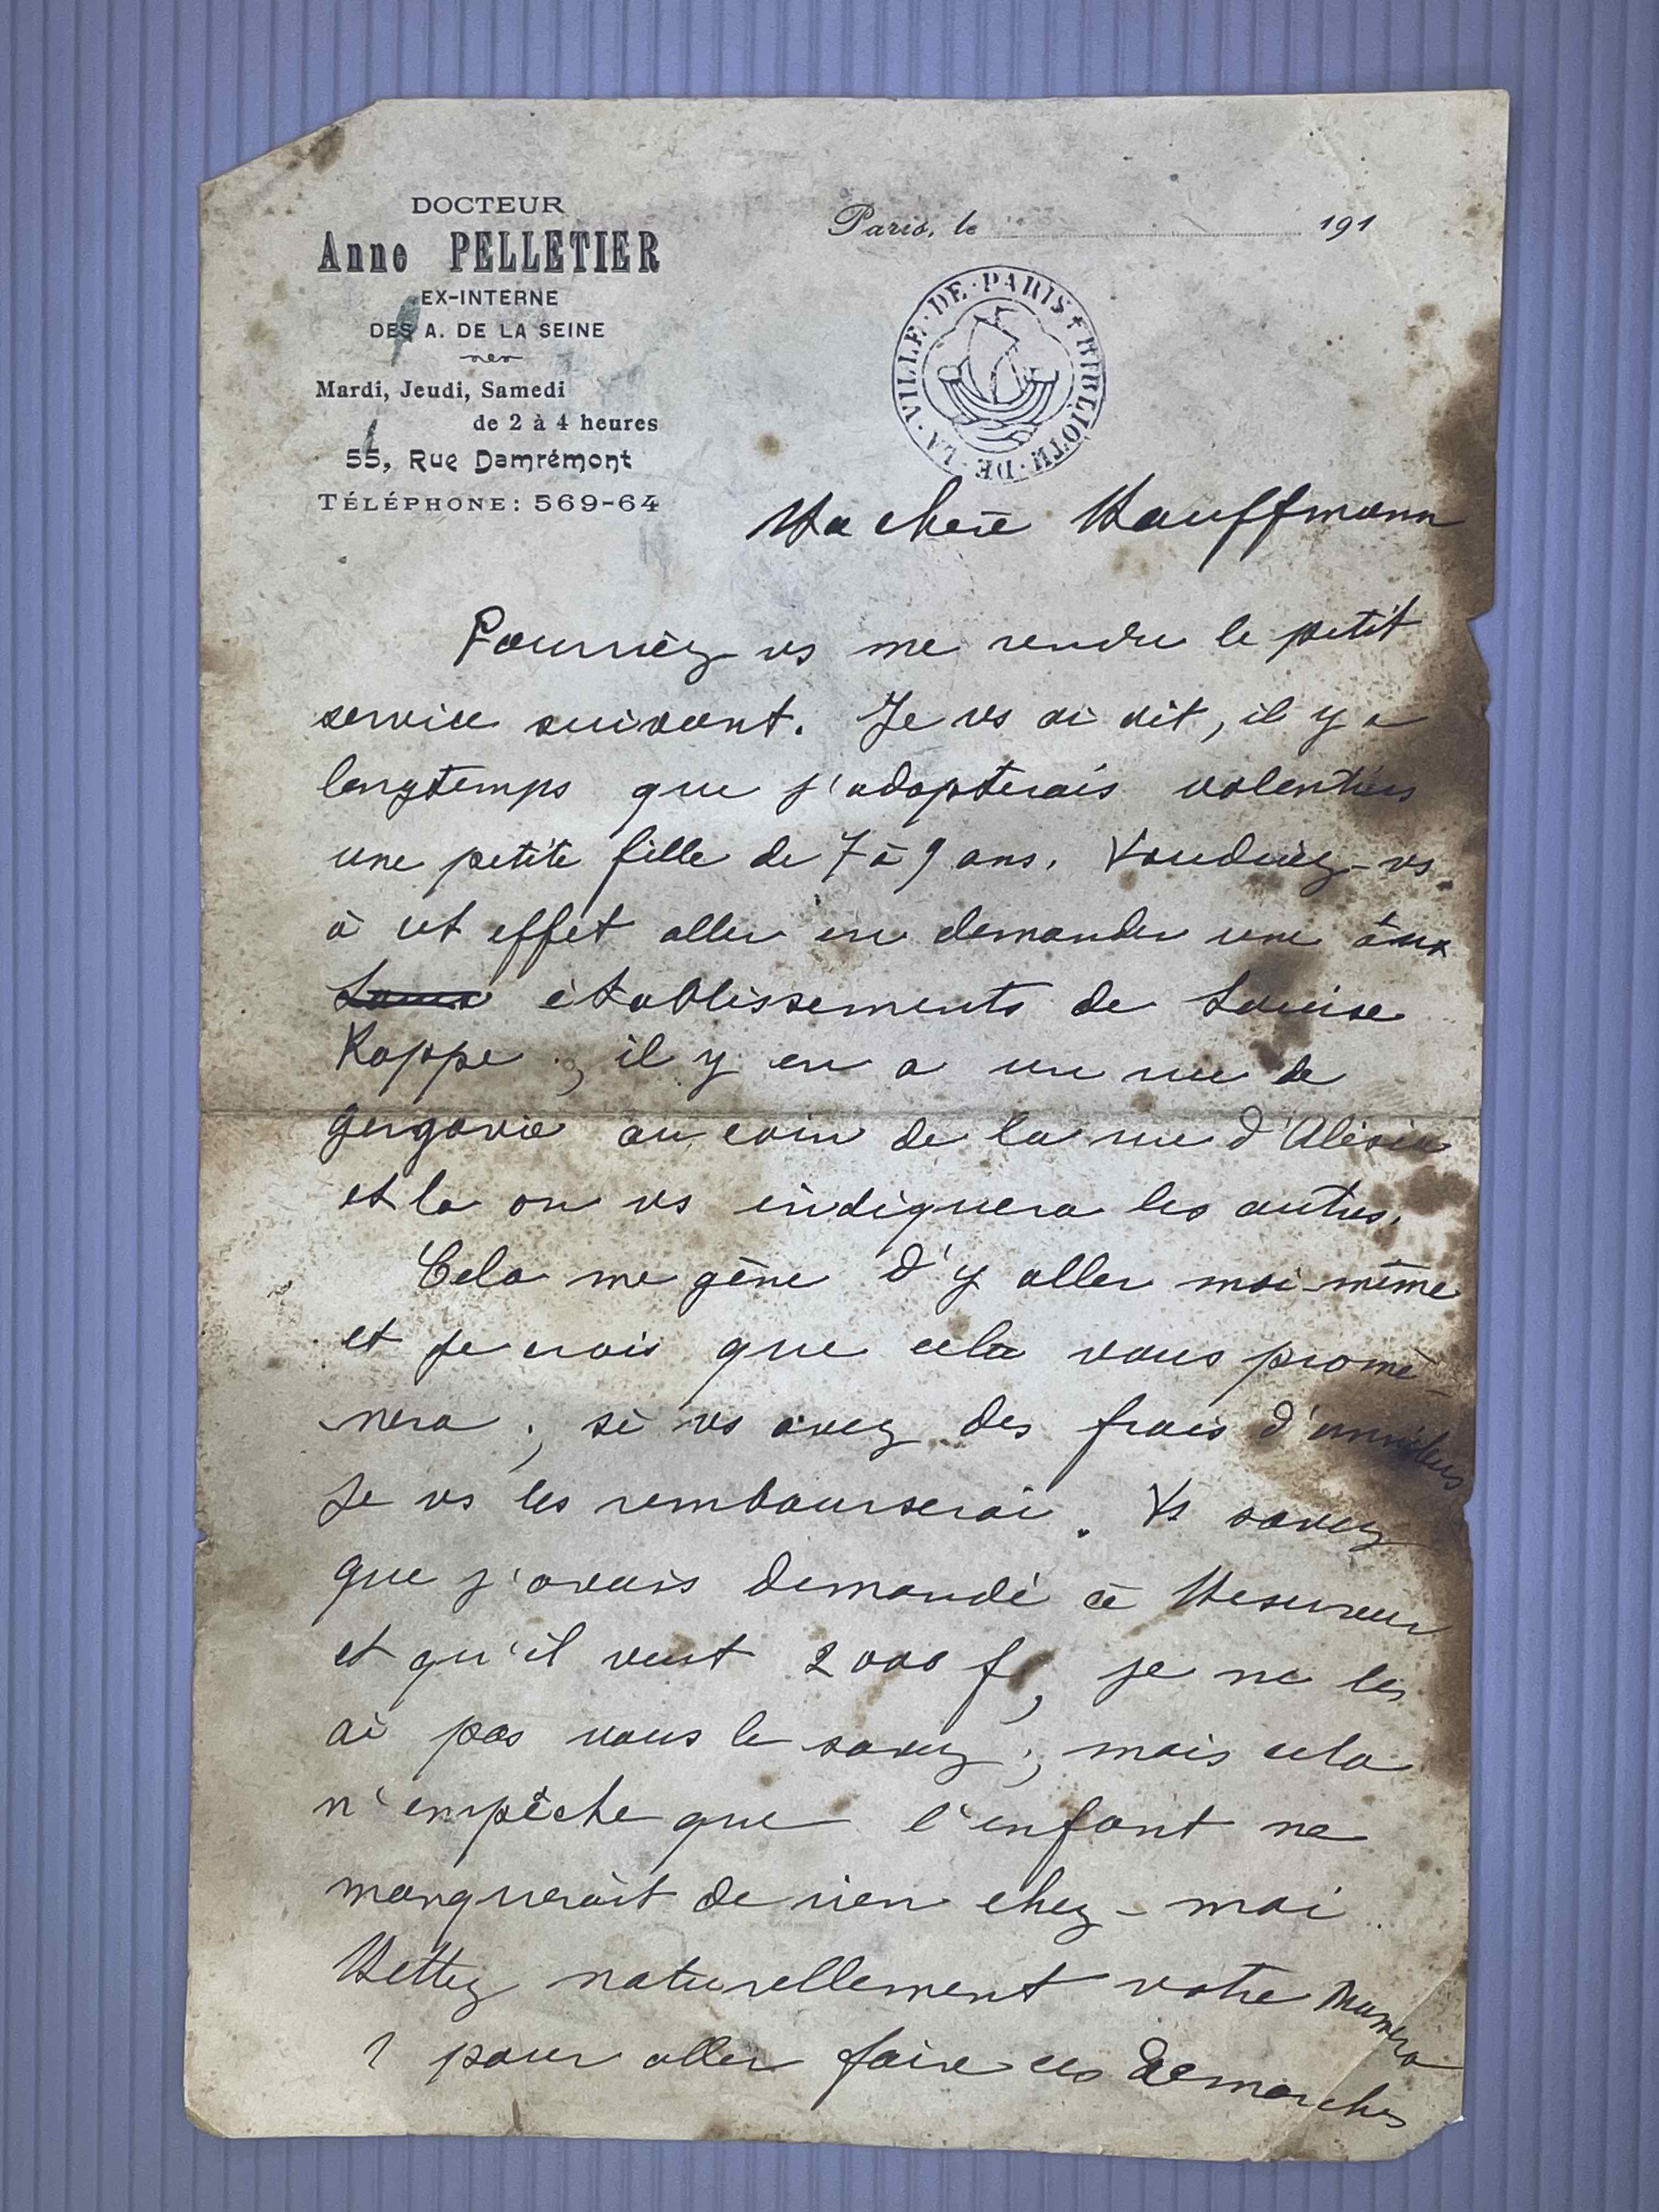 DOCTEUR
Anne PELLETIER
EX-INTERNE
DES A. DE LA SEINE
Mardi, Jeudi, Samedi
de 2 à 4 heures
55, Rue Damrémont
TÉLÉPHONE: 569-64
Paris, le 191
BIBLIOTH·DE·LA·VILLE·DE·PARIS
Ma chère Kauffmann
Pourriez vs me rendre le petit
service suivant. Je vs ai dit, il y a
longtemps que j'adopterais volontiers
une petite fille de 7 à 9 ans. Voudriez-vs
à cet effet aller en demander une aux
établissements de Louise
Koppe ; il y en a un rue de
Gergovie au coin de la rue d'Alésia
et là on vs indiquera les autres.
Cela me gêne d'y aller moi-même
et je crois que cela vous promè-
nera ; si vs avez des frais d'omnibus
je vs les rembourserai. Vs savez
que j'avais demandé à Mesureur
et qu'il veut 2000 f, je ne les
ai pas vous le savez ; mais cela
n'empêche que l'enfant ne
manquerait de rien chez-moi
Mettez naturellement votre numéro
1 pour aller faire ces démarches